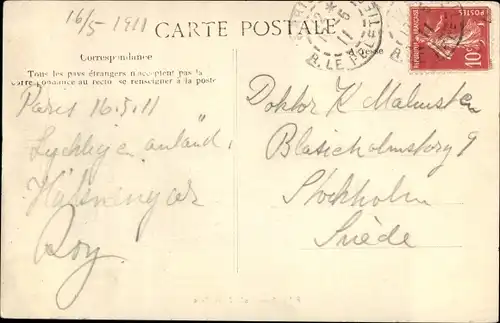 16/5 1911
CARTE POSTALE
Correspondance
Adresse
Tous les pays étrangers n'acceptent pas la
correspondance au recto, se renseigner à la poste
R. LE PELETIER
11
RÉPUBLIQUE FRANÇAISE
POSTES
10
Paris 16.5.11
Lyckligen anländ,
Hälsningar
Roy
Doktor K Malmsten
Blasieholmstorg 9
Stockholm
Suède